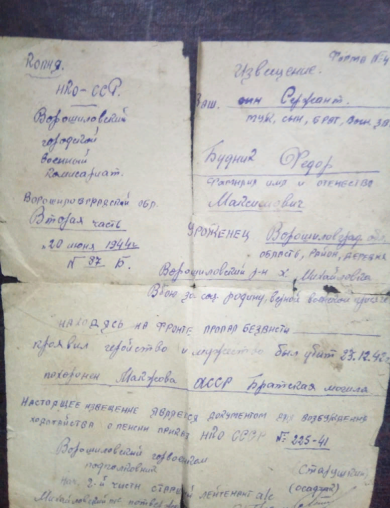 Копия.
НКО-ССР.
Ворошиловский
городской
военный
комисариат.
Ворошиловградской обл.
Вторая часть
"20 июня 1944г
N 97 Б.
Форма №4
Извещение.
Ваш сын Сержант.
муж, сын, брат, воин. зв.
Будний Федор
фамилия имя и отчество
Максимович
Уроженец Ворошиловград. обл.
область, район, деревня
Ворошиловский р-н х. Михайловка
В бою за соц родину, верной военной
находясь на фронте пропал безвисти
проявил геройство и мужество был убит 23.12.42г
похоронен АССР Братская могила
Настоящее извещение является документом для возбуждения
ходотайства о пенсии приказ НКО СССР № 225-41
Ворошиловский горвоенком
подполковник
нач. 2-й части старший лейтенант а/с